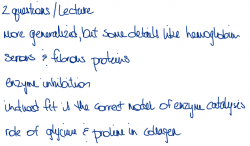 2 questions / Lecture
more generalized, but some details like hemoglobin
serous & fibrous proteins
enzyme inhibition
induced fit is the correct model of enzyme catalysis
role of glycine & proline in collagen